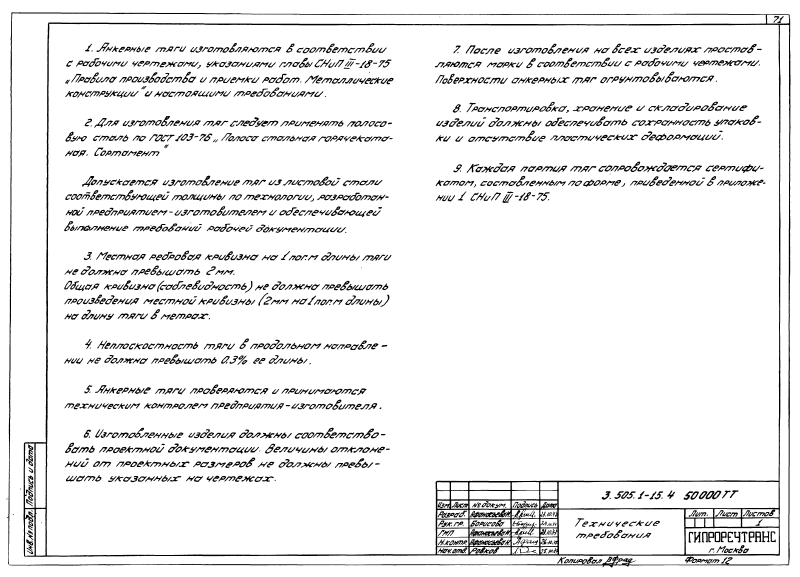 71
1. Анкерные тяги изготовляются в соответствии
с рабочими чертежами, указаниями главы СНиП III-18-75
„Правила производства и приемки работ. Металлические
конструкции" и настоящими требованиями.
2. Для изготовления тяг следует применять полосо-
вую сталь по ГОСТ 103-76 „Полоса стальная горячеката-
ная. Сортамент"
Допускается изготовление тяг из листовой стали
соответствующей толщины по технологии, разработан-
ной предприятием-изготовителем и обеспечивающей
выполнение требований рабочей документации.
3. Местная ребровая кривизна на 1 пог.м длины тяги
не должна превышать 2 мм.
Общая кривизна (саблевидность) не должна превышать
произведения местной кривизны (2мм на 1 пог.м длины)
на длину тяги в метрах.
4. Неплоскостность тяги в продольном направле-
нии не должна превышать 0.3% ее длины.
5. Анкерные тяги проверяются и принимаются
техническим контролем предприятия-изготовителя.
6. Изготовленные изделия должны соответство-
вать проектной документации. Величины отклоне-
ний от проектных размеров не должны превы-
шать указанных на чертежах.
7. После изготовления на всех изделиях простав-
ляются марки в соответствии с рабочими чертежами.
Поверхности анкерных тяг огрунтовываются.
8. Транспортировка, хранение и складирование
изделий должны обеспечивать сохранность упаков-
ки и отсутствие пластических деформаций.
9. Каждая партия тяг сопровождается сертифи-
катом, составленным по форме, приведенной в приложе-
нии 1 СНиП III-18-75.
Инв.№ подл. Подпись и дата
3.505.1-15.4 50000ТТ
Изм. Лист № докум. Подпись Дата
Разраб.
Рук.гр. Борисова
ГИП
Н.контр.
Нач.отд. Ровков
Технические
требования
Лит. Лист Листов
1
ГИПРОРЕЧТРАНС
г. Москва
Копировал
Формат 12